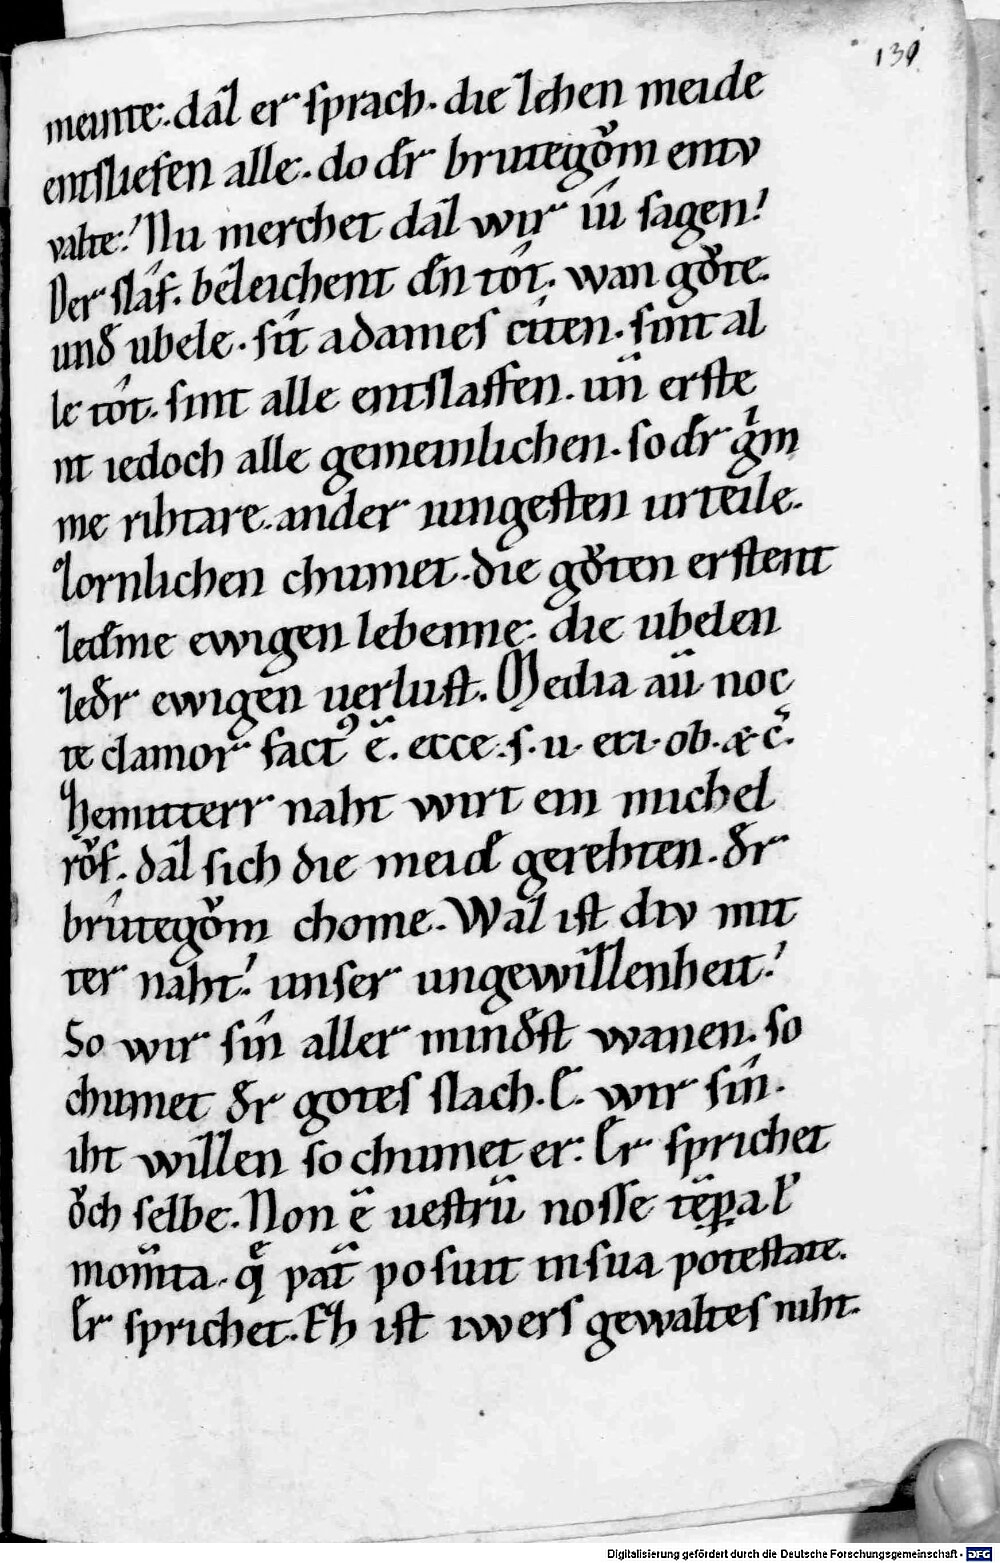 131
meinte. daz er sprach. die zehen meide
entsliefen alle. do d̄r brutegǒm entv
valte. Nu merchet daz wir íu sagen.
Der slâf. bezeichent d̄n tôt. wan gǒte.
und ubele. sît adames citen. sint al
le tôt. sint alle entslaffen. uñ erste
nt iedoch alle gemeinlichen. so d̄r gⁱm
me rihtare. ander iungesten urteile.
zornlichen chumet. die gǒten erstent
zed̄me ewigen lebenne. die ubelen
zed̄r ewigen uerlust. Media aū noc
te clamor factꝰ ē. ecce. s. u. exi. ob. & c̄.
Zemitterr naht wirt ein michel
rǒf. daz sich die meid̄ gerehten. d̄r
brûtegǒm chome. Waz ist div mit
ter naht. unser ungewizzenheit.
So wir sîn aller mind̄st wanen. so
chumet d̄r gotes slach. E. wir sîn.
iht wizzen so chumet er. Er sprichet
ǒch selbe. Non ē uestrū nosse tēpa. ł
mom̄ta. q̄ pat̄ posuit in sua potestate.
Er sprichet. Ez ist iwers gewaltes niht.
Digitalisierung gefördert durch die Deutsche Forschungsgemeinschaft - DFG